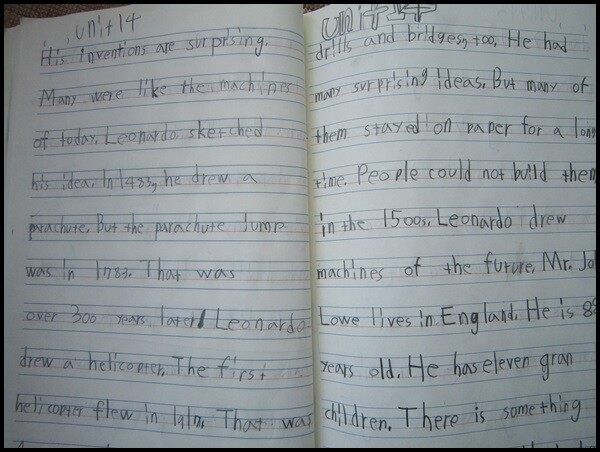 unit14
His inventions are surprising.
Many were like the machines
of today. Leonardo sketched
his idea. In 1483, he drew a
parachute. But the parachute jump
was in 1783. That was
over 300 years later! Leonardo
drew a helicopter. The first
helicopter flew in That was
unit 14
drills and bridges, too. He had
many surprising ideas. But many of
them stayed on paper for a long
time. People could not build them
in the 1500s. Leonardo drew
machines of the future. Mr. Jo
Lowe lives in England. He is 88
years old. He has eleven gran
children. There is something